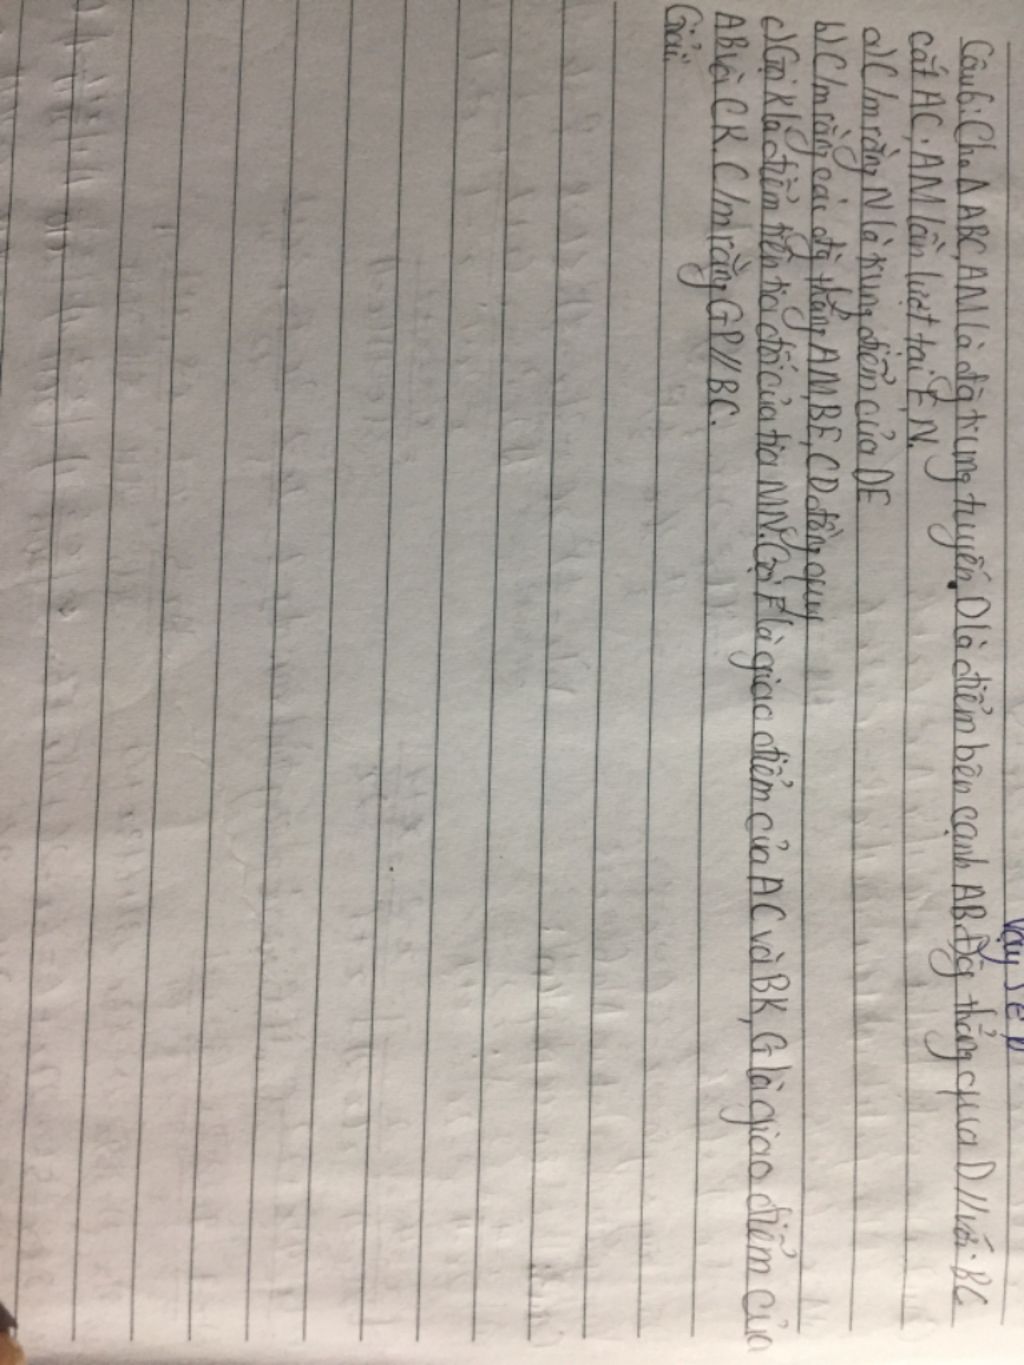 Vậy S =
Câu 6: Cho Δ ABC, AM là đg trung tuyến. D là điểm bên cạnh AB. Đg thẳng qua D // với BC
cắt AC, AM lần lượt tại E, N.
a) C/m rằng N là trung điểm của DE
b) C/m rằng các đg thẳng AM, BE, CD đồng quy
c) Gọi K là điểm trên tia đối của tia MN. Gọi F là giao điểm của AC và BK, G là giao điểm của
AB và CK. C/m rằng GP // BC.
Giải: